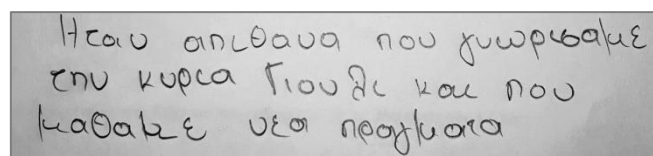 Ηταν απιθανα που γνωρισαμε
την κυρια Γιουλι και που
μαθαμε νεα πραγματα